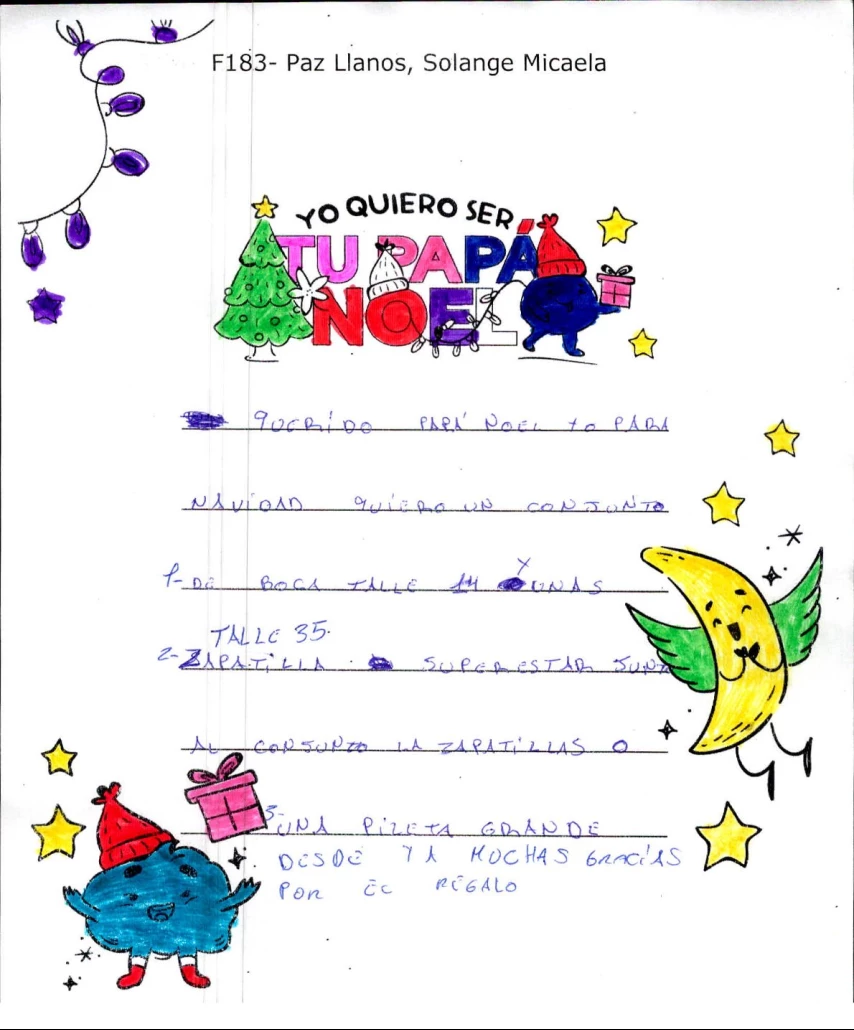 F183- Paz Llanos, Solange Micaela
YO QUIERO SER
TU PAPÁ
NOEL
QUERIDO PAPÁ NOEL YO PARA
NAVIDAD QUIERO UN CONJUNTO
1- DE BOCA TALLE 14 Y UNAS
TALLE 35.
2- ZAPATILLA SUPERESTAR JUNTO
AL CONJUNTO LA ZAPATILLAS O
3- UNA PILETA GRANDE
DESDE YA MUCHAS GRACIAS
POR EL REGALO